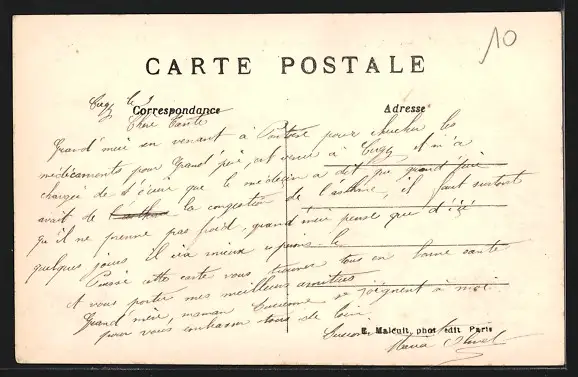 10
CARTE POSTALE
Correspondance
Adresse
Cugy le
Chère Tante
Grand'mère en venant à Pontoise pour chercher les
médicaments pour Grand'père, est venue à Cugy il m'a
chargée de t'écrire que le médecin a dit que grand'père
avait de la congestion de l'asthme, il faut surtout
qu'il ne prenne pas froid, grand'mère pense que d'ici
quelques jours il ira mieux
Puisse cette carte vous trouver tous en bonne santé
et vous porter mes meilleurs amitiés
Grand'mère, maman se joignent à moi
pour vous embrasser tous de loin.
E. Malcuit, phot edit Paris
Maria